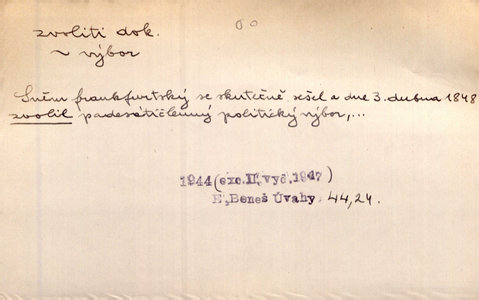 zvoliti dok.
~ výbor
Sněm frankfurtský se skutečně sešel a dne 3. dubna 1848
zvolil padesátičlenný politický výbor,...
1944 (exc.II,vyč.1947)
E,Beneš Úvahy, 44,24.